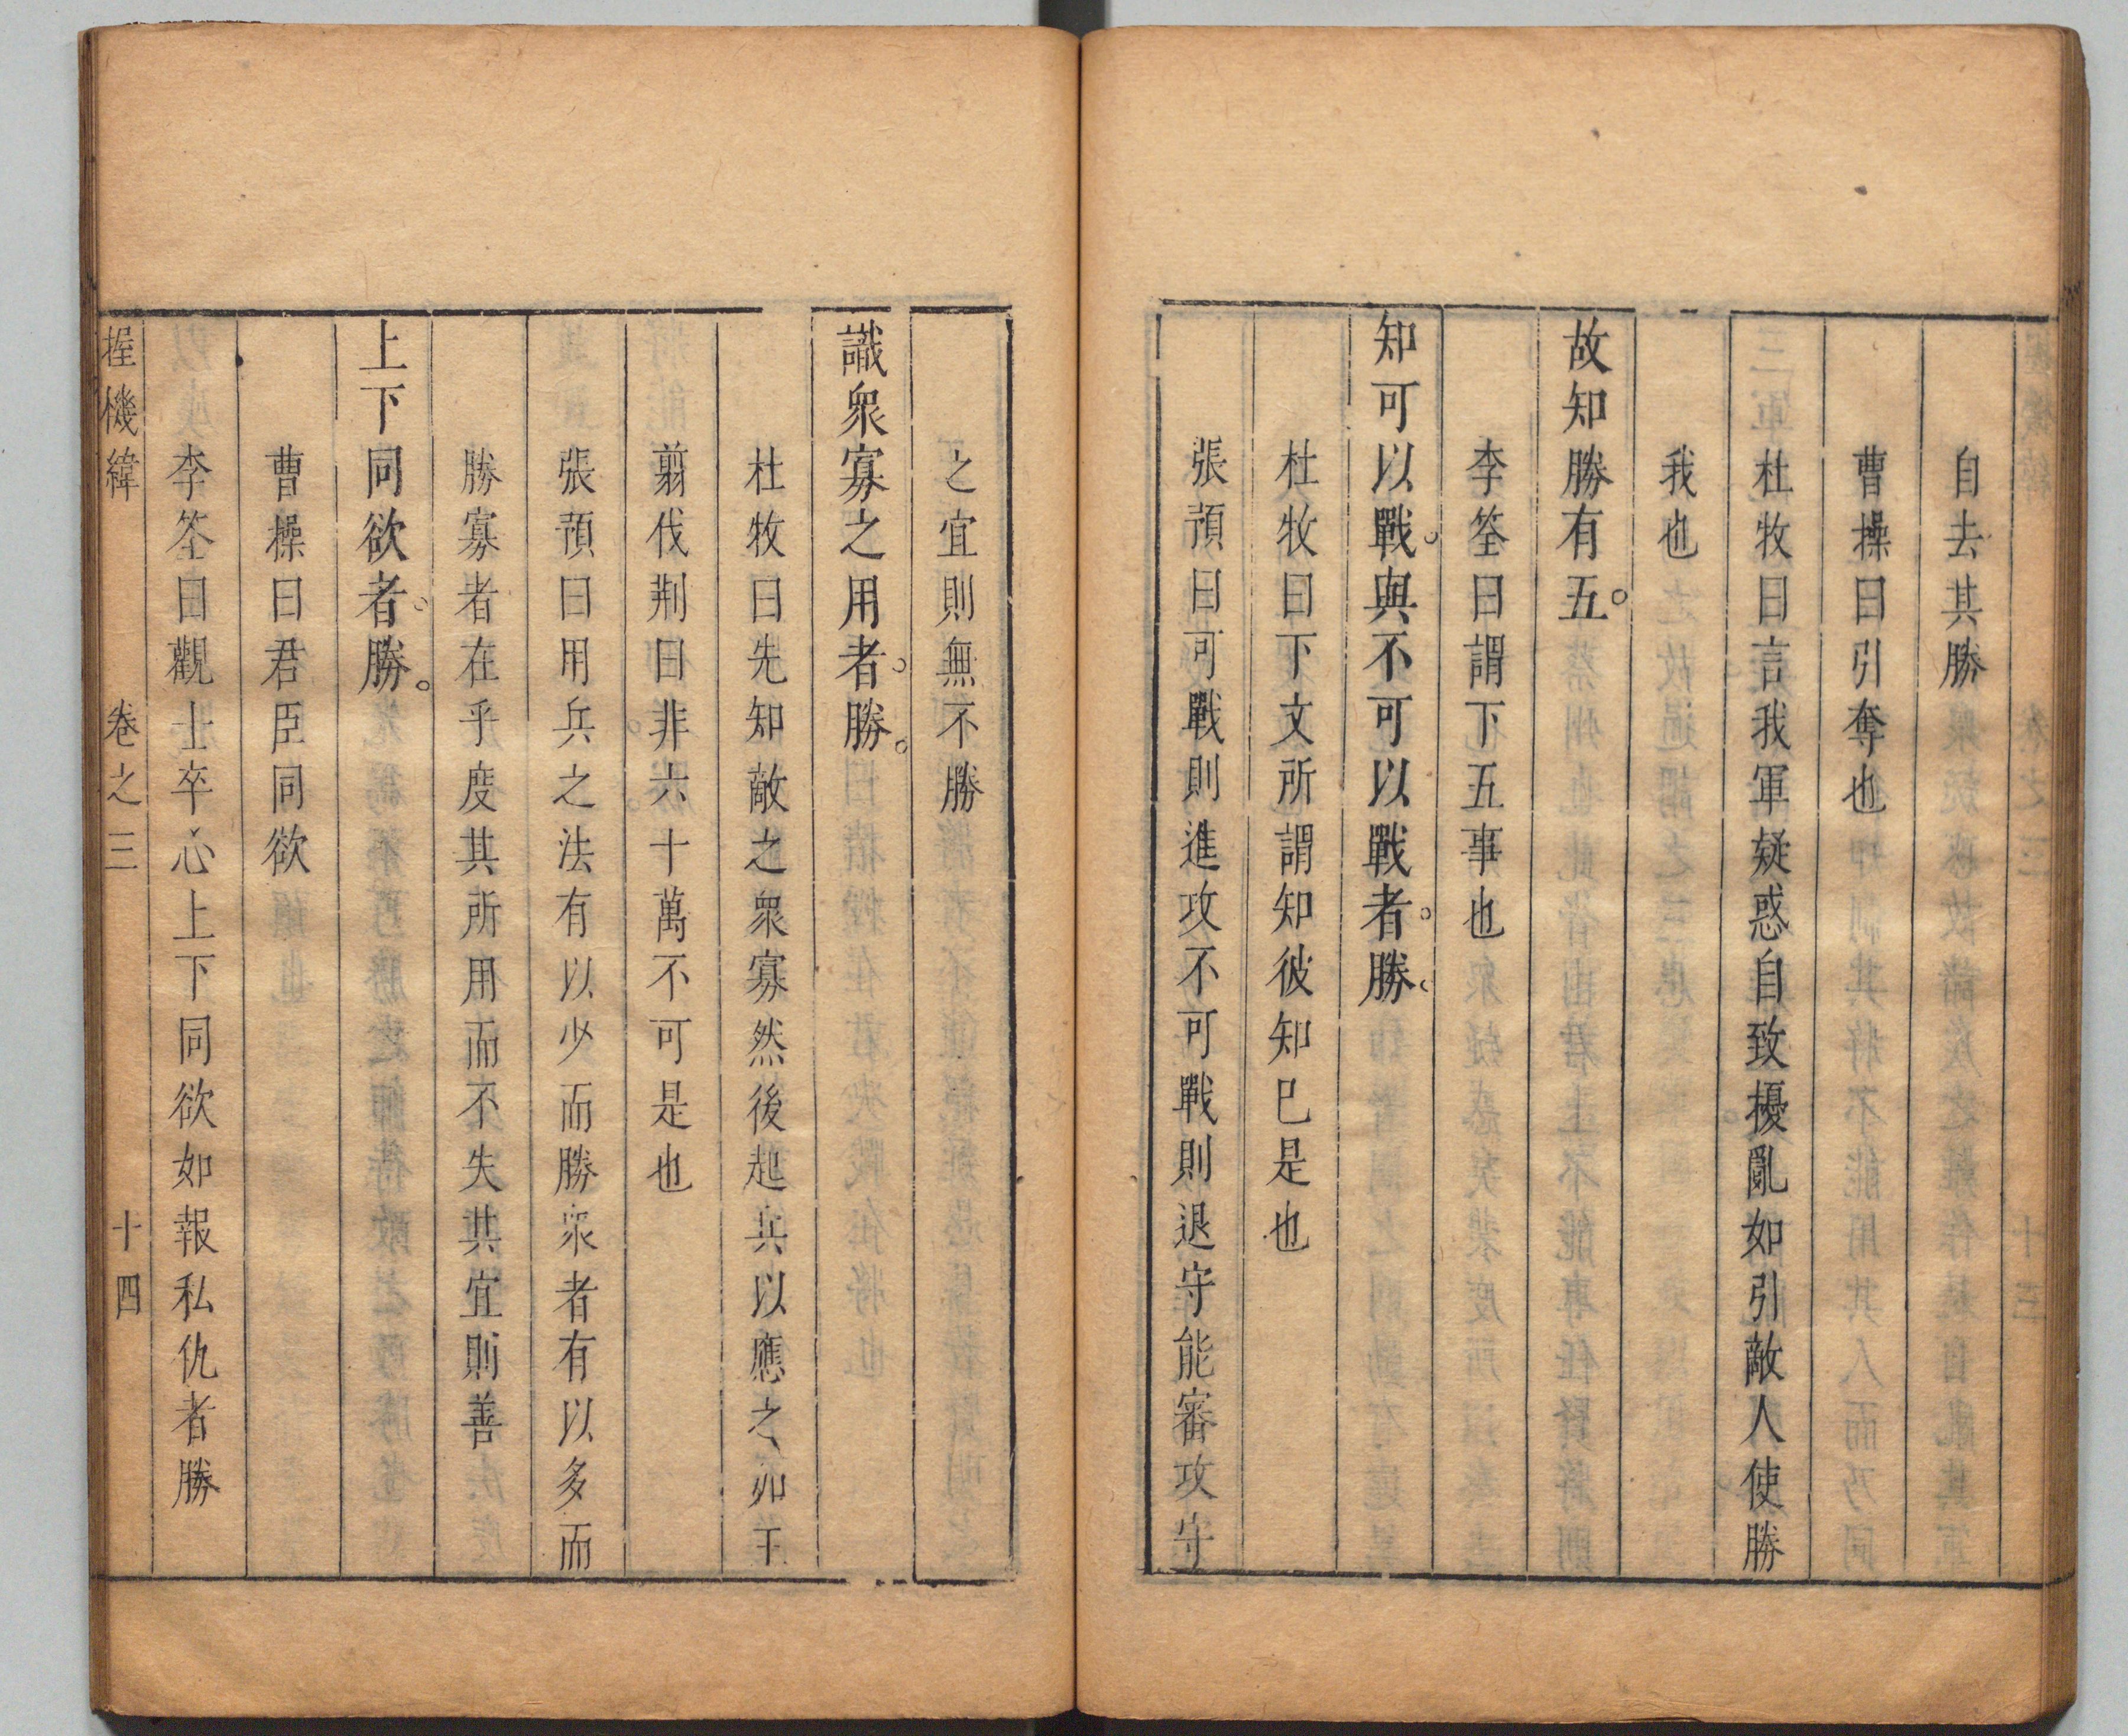 自去其勝
曹操曰引奪也
杜牧曰言我軍疑惑自致擾亂如引敵人使勝
我也
故知勝有五。
李筌曰謂下五事也
知可以戰。與不可以戰者。勝。
杜牧曰下文所謂知彼知己是也
張預曰可戰則進攻不可戰則退守能審攻守
之宜則無不勝
識衆寡之用者。勝。
杜牧曰先知敵之衆寡然後起兵以應之如王
翦伐荆曰非六十萬不可是也
張預曰用兵之法有以少而勝衆者有以多而
勝寡者在乎度其所用而不失其宜則善
上下同欲者。勝。
曹操曰君臣同欲
李筌曰觀士卒心上下同欲如報私仇者勝
握機緯 卷之三 十四